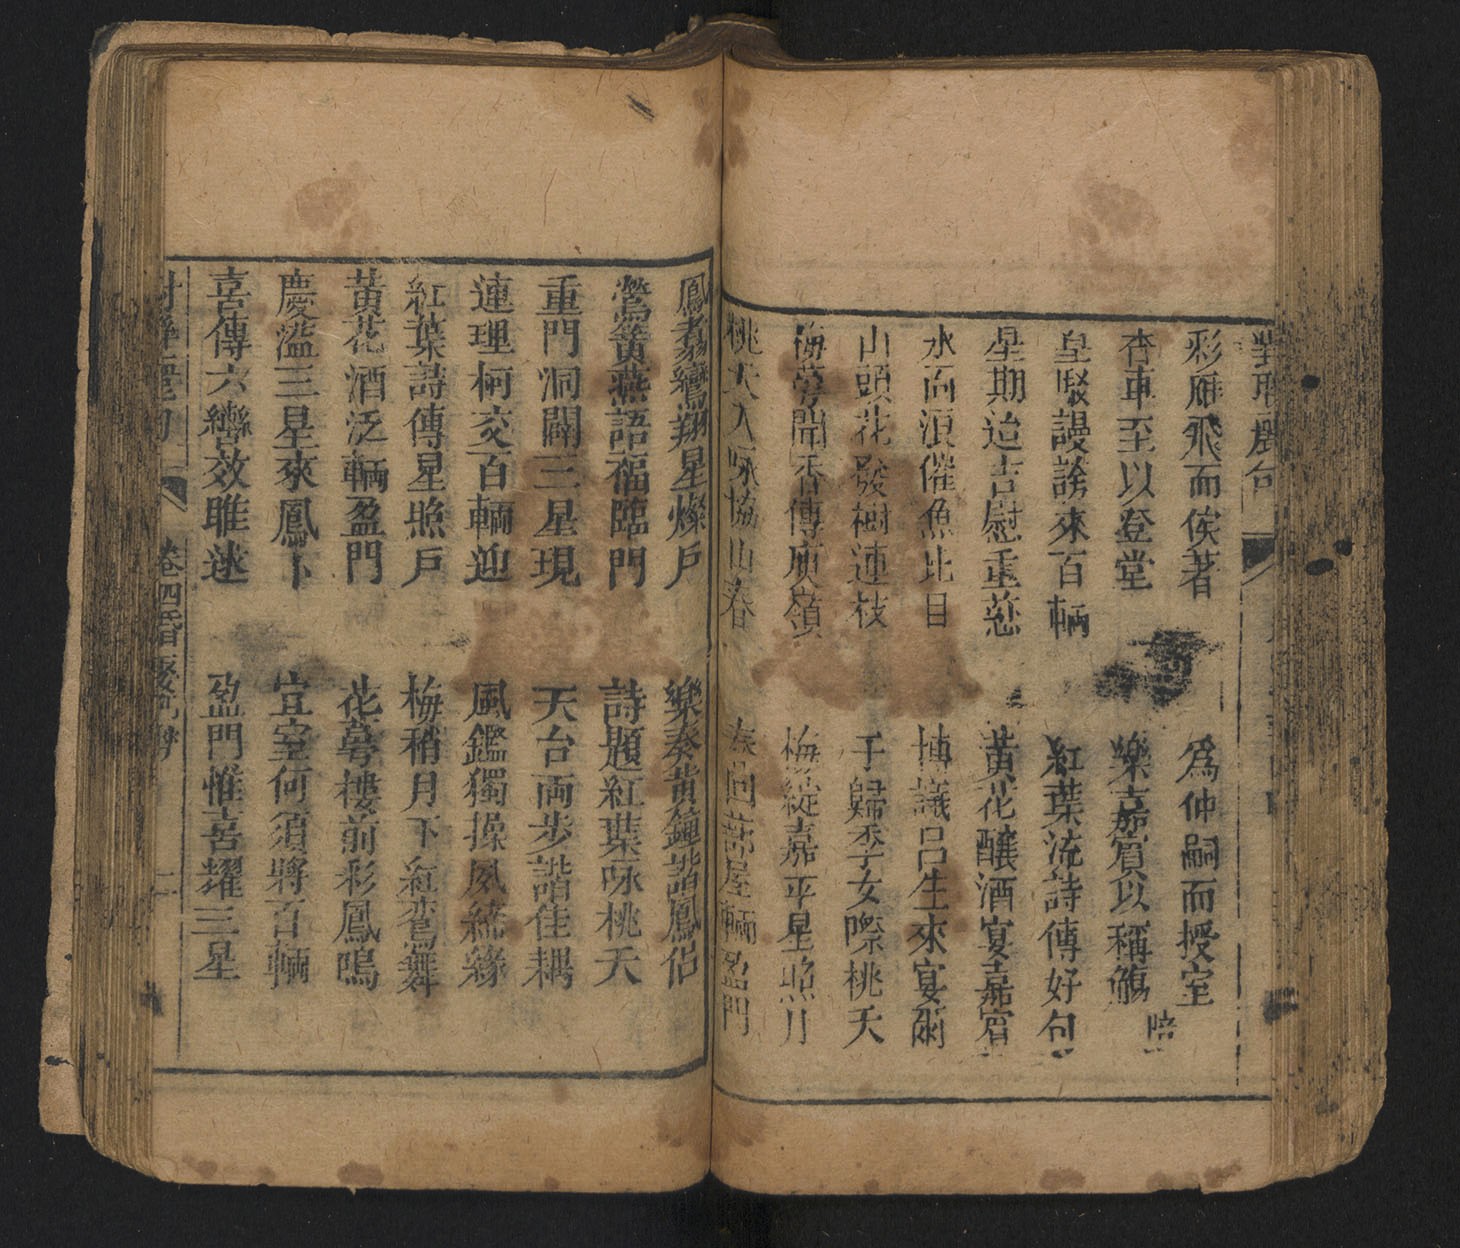 彩雁飛而俟著　為仲嗣而授室
杏車至以登堂　樂嘉賓以稱觴
皇駁謾誇來百輛　紅葉流詩傳好句
星期迨吉慰重慈　黃花釀酒宴嘉賓
水面浪催魚比目　博議呂生來宴爾
山頭花發樹連枝　于歸季女際桃夭
梅夢開香傳庾嶺　梅綻嘉平星照戶
桃夭入咏協山春　春回蔀屋輛盈門
鳳翥鸞翔星燦戶　樂奏黃鐘諧鳳侶
鶯簧燕語福臨門　詩題紅葉咏桃夭
重門洞闢三星現　天台兩步諧佳耦
連理柯交百輛迎　風鑑獨操夙統緣
紅葉詩傳星照戶　梅稍月下紅鸞舞
黃花酒泛輛盈門　花萼樓前彩鳳鳴
慶溢三星來鳳卜　宜室何須將百輛
喜傳六轡效雎逑　盈門惟喜耀三星
卷四 二